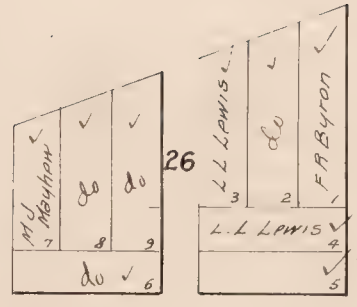 M J Mayhew
7
do
8
do
9
do
6
26
L L Lewis
3
do
2
F R Byron
1
L. L Lewis
4
5